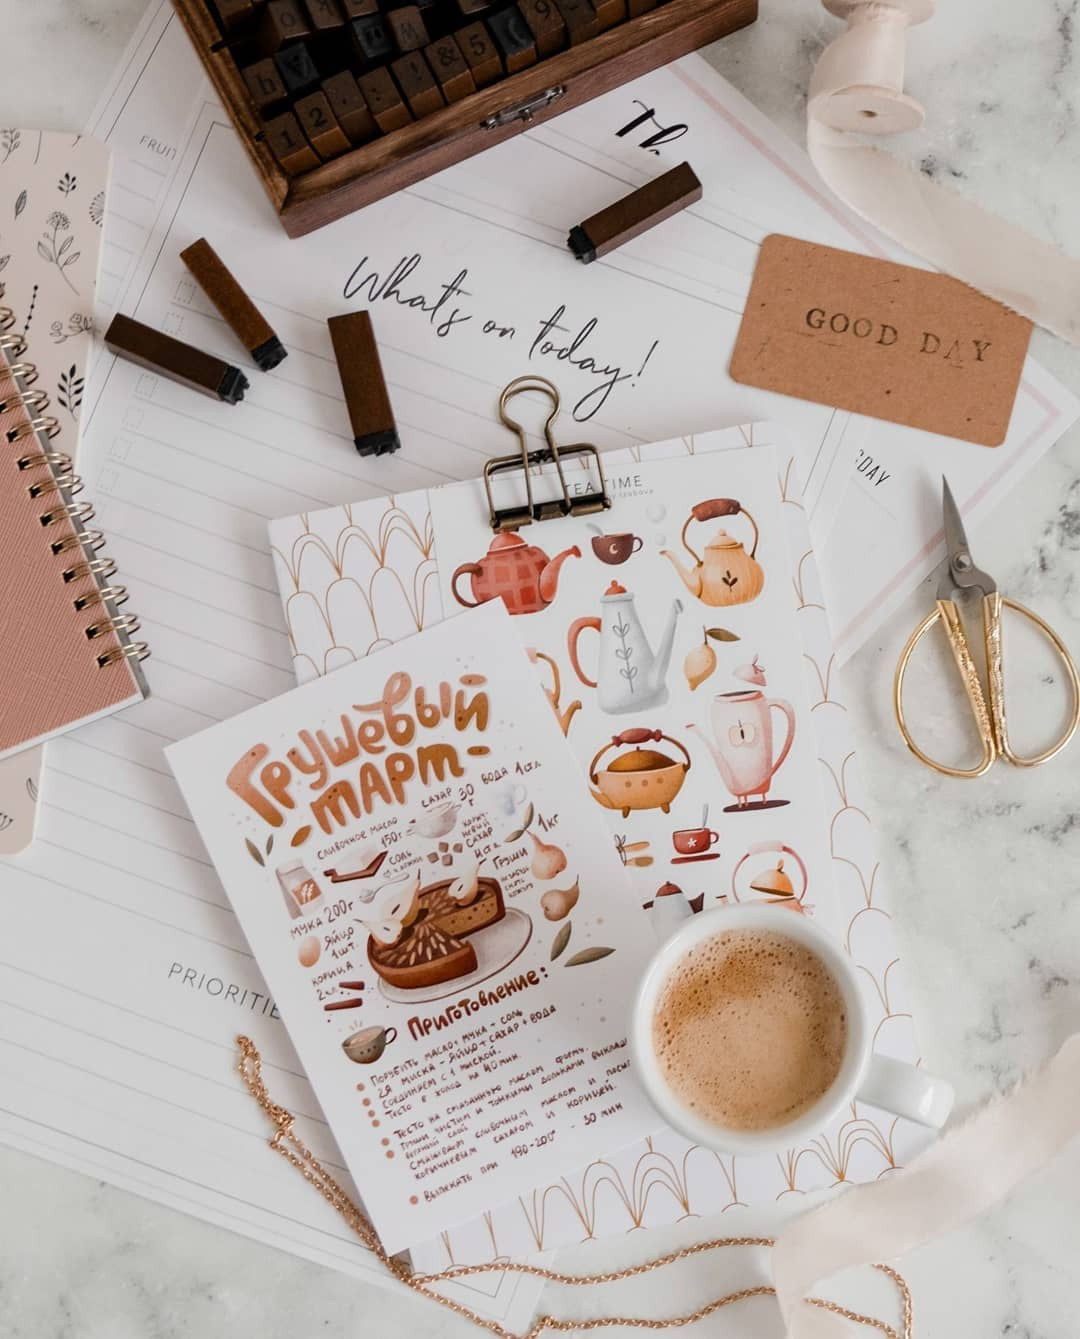 1 2 . ' ! & 5 9
h
FRUIT
Th
What's on today!
GOOD DAY
DAY
TEA TIME
Грушевый
тарт
сахар 30 г
вода 1 ст.л.
сливочное масло
150 г
соль
корич-
невый
сахар
груши
1 кг
мука 200 г
яйцо
1 шт.
корица
Приготовление:
Порубить масло + мука + соль
2я миска - яйцо + сахар + вода
Соединяем с 1 миской.
Тесто в холод на 40 мин.
Тесто на смазанную маслом форму.
Груши чистим и тонкими дольками выклад
верхний слой
смазываем сливочным маслом и посып
коричневым сахаром и корицей.
Выпекать при 190-200° - 30 мин
PRIORITIE